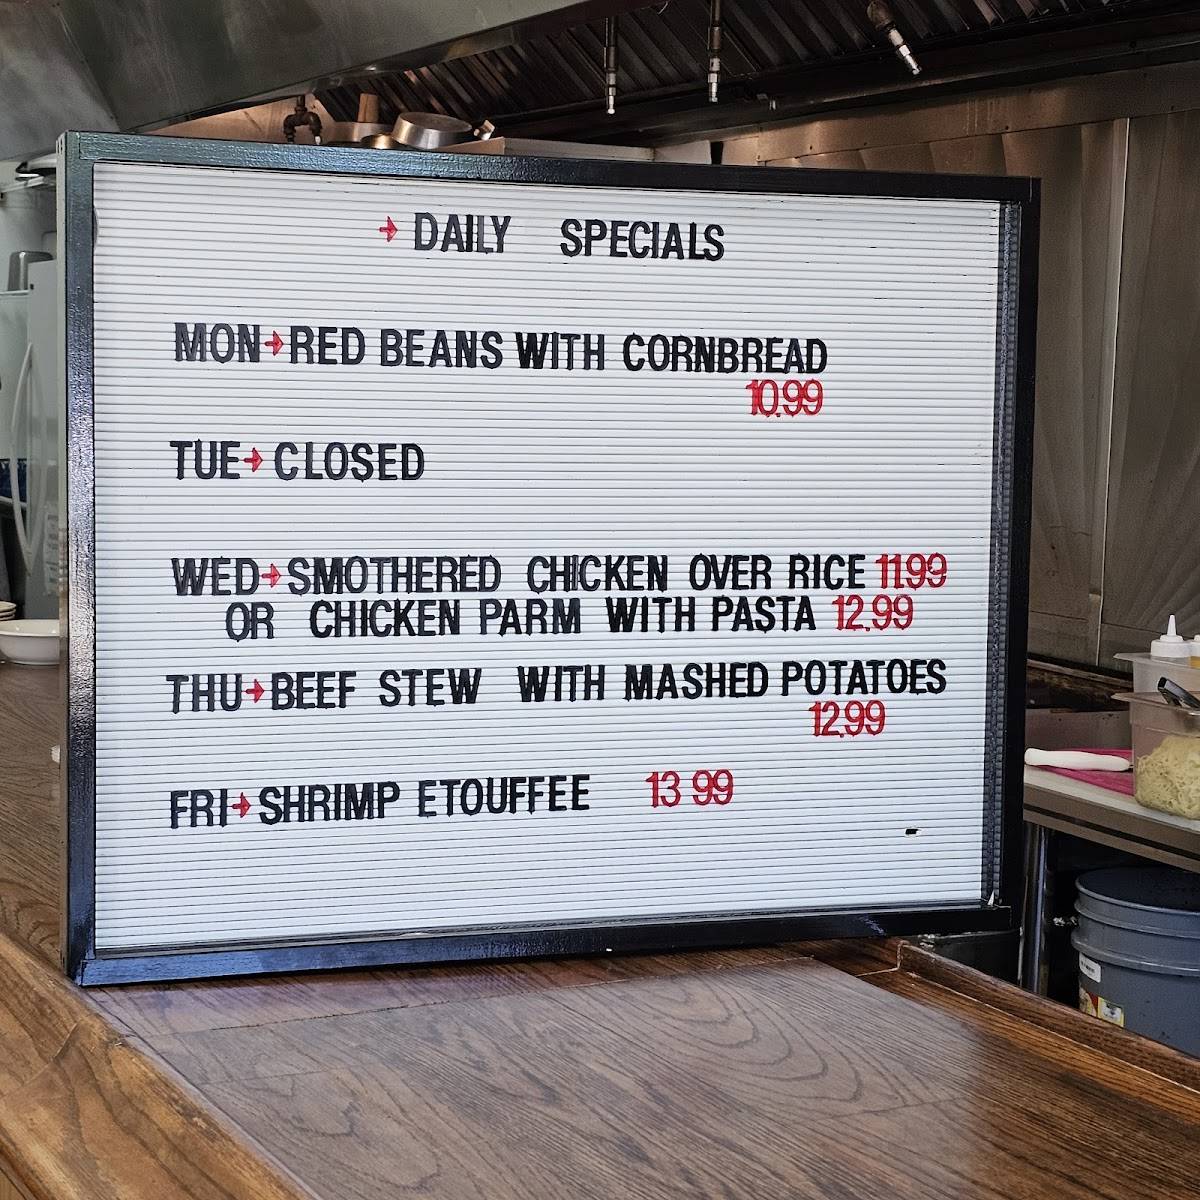 → DAILY SPECIALS
MON→RED BEANS WITH CORNBREAD
10.99
TUE→CLOSED
WED→SMOTHERED CHICKEN OVER RICE 11.99
OR CHICKEN PARM WITH PASTA 12.99
THU→BEEF STEW WITH MASHED POTATOES
12.99
FRI→SHRIMP ETOUFFEE 13 99